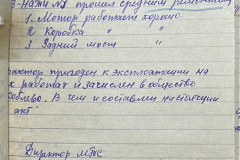 З-НАТИ №1 прошел средний ремонт
1. Мотор работает хорошо
2 Коробка " "
3 Задний мост "
трактор пригоден к эксплоатации на
х работах и зачислен в общество
В чем и составлен настоящий
акт
Директор МТС